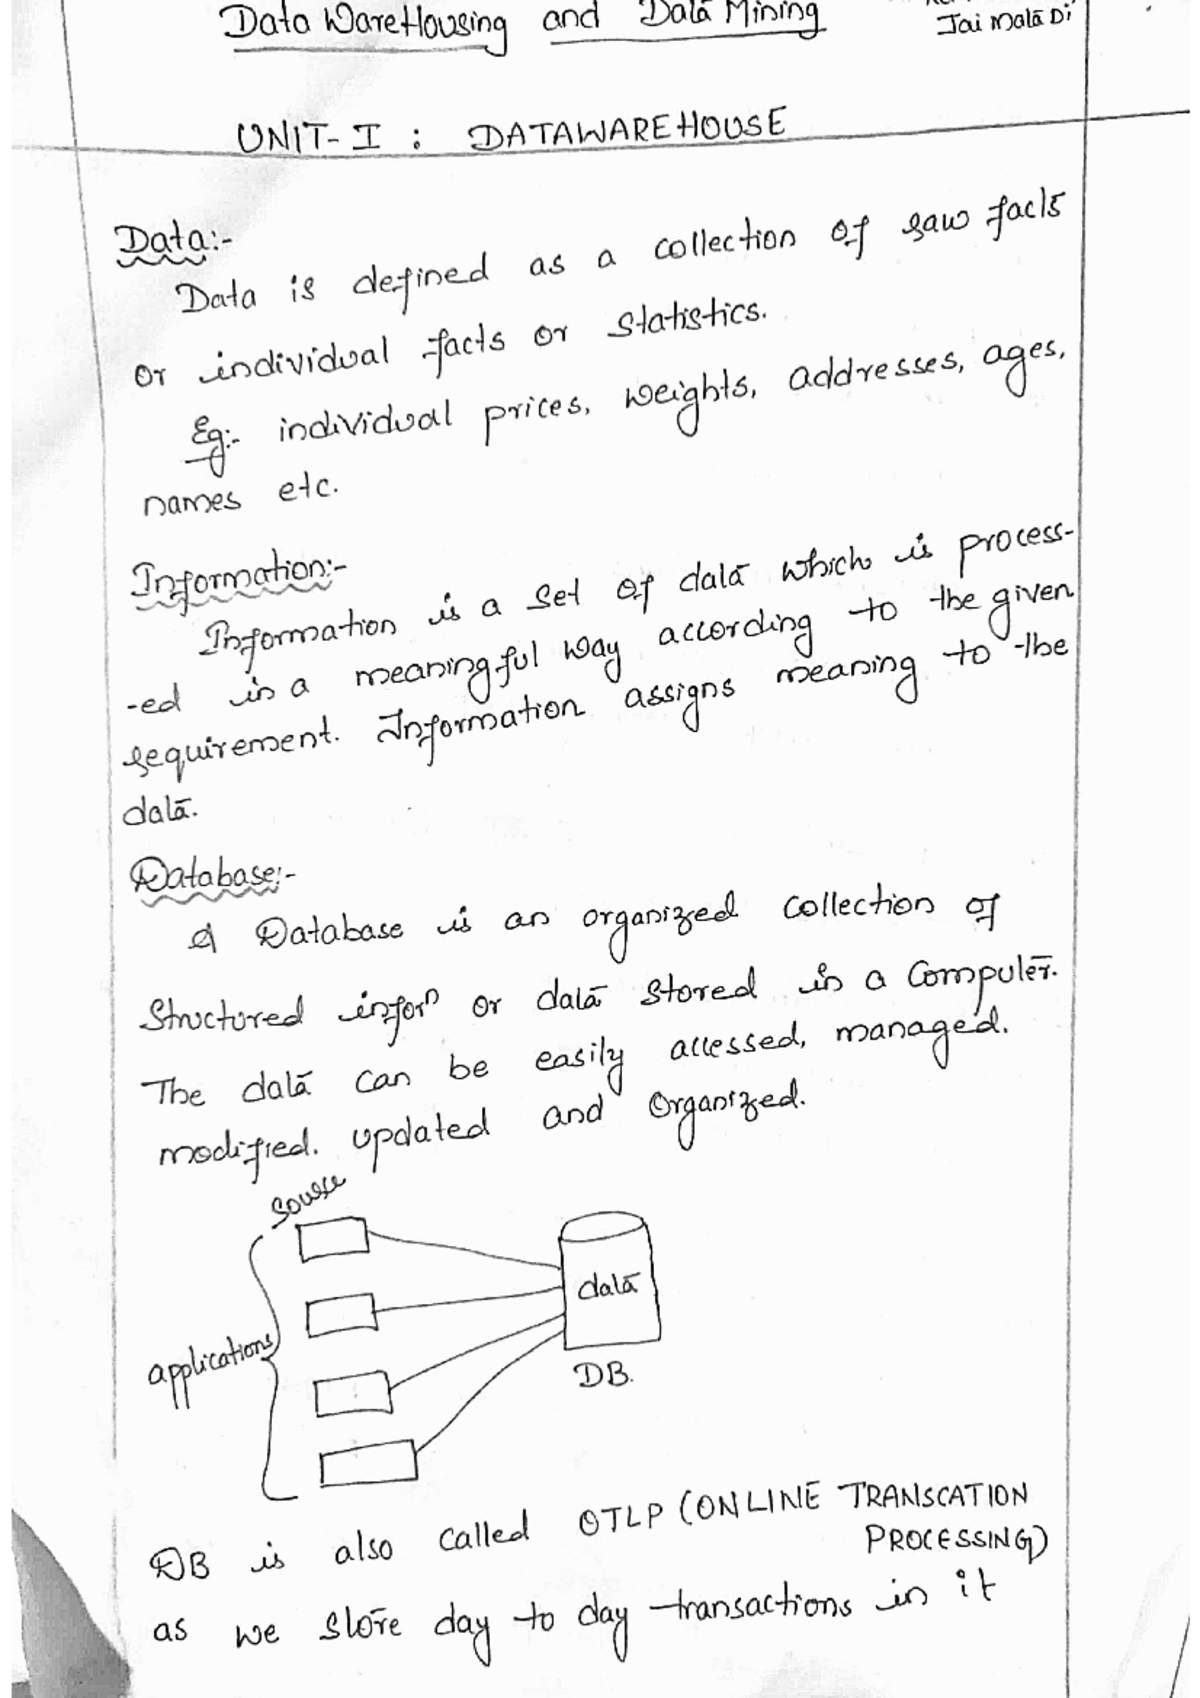 Data WareHousing and Data Mining
Jai Mala Di
UNIT-I : DATAWAREHOUSE
Data:-
Data is defined as a collection of raw facts
or individual facts or statistics.
Eg:- individual prices, weights, addresses, ages,
names etc.
Information:-
Information is a set of data which is process-
-ed in a meaningful way according to the given
requirement. Information assigns meaning to the
data.
Database:-
A Database is an organized collection of
structured inforn or data stored in a computer.
The data can be easily accessed, managed.
modified. updated and organized.
source
applications
data
DB.
DB is also called OTLP (ONLINE TRANSCATION
PROCESSING)
as we store day to day transactions in it